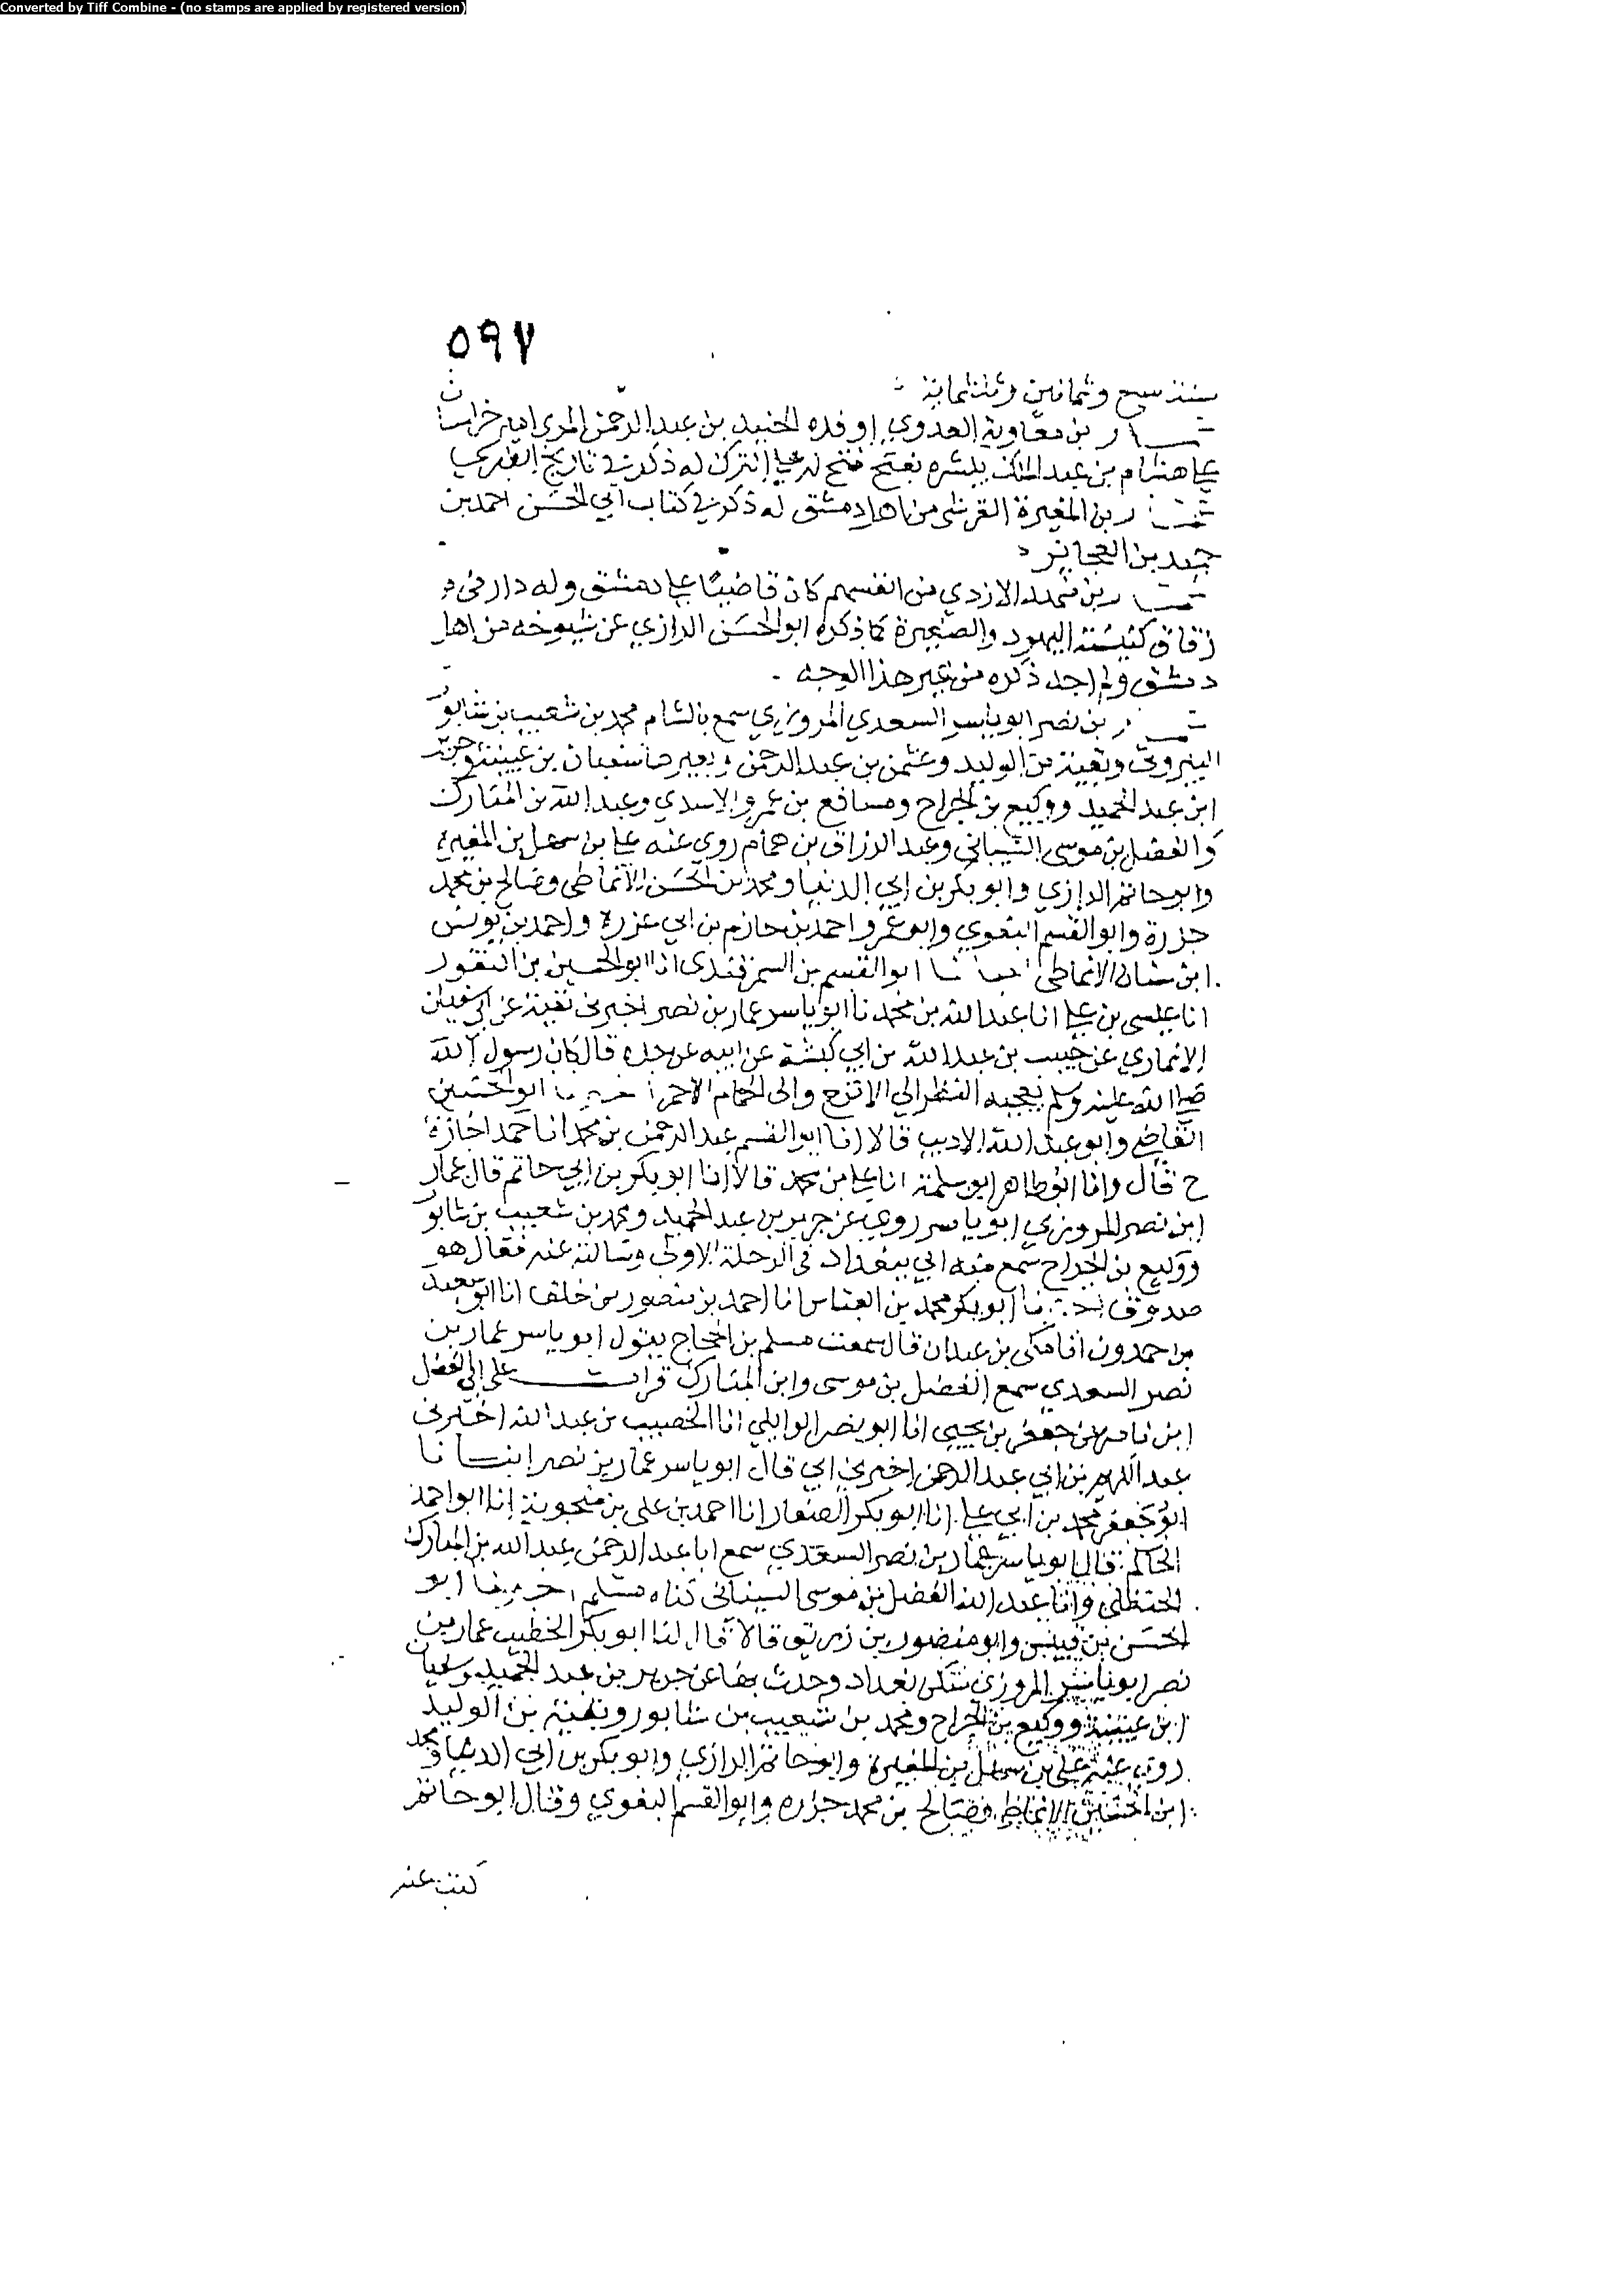 Converted by Tiff Combine - (no stamps are applied by registered version)
٥٩٧
سنة سبع وثمانين وثلثماية
عمار بن معاوية العدوي اوفده الجنيد بن عبد الرحمن المري امير خراسان
على هشام بن عبد الملك يبشره بفتح فتح له على الترك له ذكر في تاريخ الطبري
عمار بن المغيرة القرشي من اهل دمشق له ذكر في كتاب ابي الحسن احمد بن
حميد بن العجايز
عمار بن محمد الازدي من انفسهم كان قاضيا على دمشق وله دار في
زقاق كنيسة اليهود والصغيرة كما ذكره ابو الحسن الرازي عن شيوخه من اهل
دمشق ولم اجد ذكره من غير هذا الوجه
عمار بن نصر ابو ياسر السعدي المروزي سمع بالشام محمد بن شعيب بن شابور
البيروتي وبقية بن الوليد وعثمن بن عبد الرحمن وبغيرها سفيان بن عيينة وجرير
ابن عبد الحميد ووكيع بن الجراح ومسافع بن عمرو الاسدي وعبد الله بن المبارك
والفضل بن موسى الشيباني وعبد الرزاق بن همام روى عنه علي بن سهل بن المغيرة
وابو حاتم الرازي وابو بكر بن ابي الدنيا ومحمد بن الحسن الانماطي وصالح بن محمد
جزرة وابو القسم البغوي وابو عمرو احمد بن حازم بن ابي غرزة واحمد بن يونس
ابن سنان الانماطي اخبرنا ابو القسم بن السمرقندي انا ابو الحسين بن النقور
انا عيسى بن علي انا عبد الله بن محمد نا ابو ياسر عمار بن نصر اخبرني بقية عن ابي سفيان
الانماري عن حبيب بن عبد الله بن ابي كبشة عن ابيه عن جده قال كان رسول الله
صلى الله عليه وسلم يعجبه النظر الى الاترج والى الحمام الاحمر اخبرنا ابو الحسين
القاضي وابو عبد الله الاديب قالا انا ابو القسم عبد الرحمن بن محمد انا حمد اجازة
ح قال وانا ابو طاهر ابو سلمة انا علي بن محمد قالا انا ابو بكر بن ابي حاتم قال عمار
ابن نصر المروزي ابو ياسر روى عن جرير بن عبد الحميد ومحمد بن شعيب بن شابور
ووكيع بن الجراح سمع منه ابي ببغداد في الرحلة الاولى وسالته عنه فقال هو
صدوق اخبرنا ابو بكر محمد بن العباس انا احمد بن منصور بن خلف انا ابو سعيد
بن حمدون انا مكي بن عبدان قال سمعت مسلم بن الحجاج يقول ابو ياسر عمار بن
نصر السعدي سمع الفضل بن موسى وابن المبارك قرات على ابي الفضل
ابن ناصر عن جعفر بن يحيى انا ابو نصر الوايلي انا الخصيب بن عبد الله اخبرني
عبد الكريم بن ابي عبد الرحمن اخبرني ابي قال ابو ياسر عمار بن نصر انبانا
ابو جعفر محمد بن ابي علي انا ابو بكر الصفار انا احمد بن علي بن منجوية انا ابو احمد
الحاكم قال ابو ياسر عمار بن نصر السعدي سمع ابا عبد الرحمن عبد الله بن المبارك
الحنظلي وابا عبد الله الفضل بن موسى السيناني كناه مسلم اخبرنا ابو
الحسن بن قبيس وابو منصور بن زريق قالا قال لنا ابو بكر الخطيب عمار بن
نصر ابو ياسر المروزي سكن بغداد وحدث بها عن جرير بن عبد الحميد وسفيان
ابن عيينة ووكيع بن الجراح ومحمد بن شعيب بن شابور وبقية بن الوليد
روى عنه علي بن سهل بن المغيرة وابو حاتم الرازي وابو بكر بن ابي الدنيا ومحمد
ابن الحسين الانماطي وصالح بن محمد جزرة وابو القسم البغوي وقال ابو حاتم
كتبت عنه